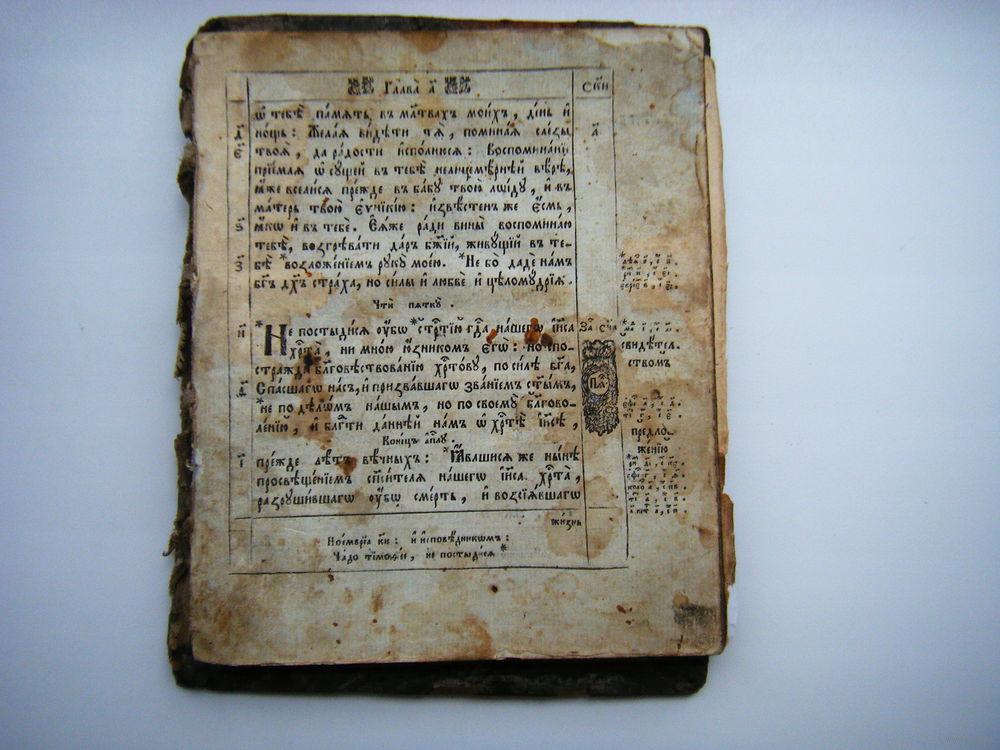 Глава̀ а҃
скн
ѿ тебѣ̀ па́мѧть въ мл҃твахъ мои́хъ, де́нь и҆
д҃ но́щь: Жела́ѧ ви́дѣти тѧ̀, помина́ѧ сле́зы
є҃ твоѧ̀, да ра́дости и҆спо́лнюсѧ: Воспомина́нїе
прїе́млѧ ѡ҆ су́щей въ тебѣ̀ нелицемѣ́рнѣй вѣ́рѣ,
ꙗ҆́же всели́сѧ пре́жде въ ба́бꙋ твою̀ лѡі́дꙋ, и҆ въ
ма́терь твою̀ є҆ѵнїкі́ю: и҆звѣ́стенъ же є҆́смь,
ѕ҃ ꙗ҆́кѡ и҆ въ тебѐ. Е҆ѧ́же ра́ди вины̀ воспомина́ю
тебѣ̀, возгрѣва́ти да́ръ бж҃їй, живꙋ́щїй въ те-
з҃ бѣ̀ *возложе́нїемъ рꙋкꙋ̀ моє́ю. *Не бо̀ дадѐ нам
бг҃ъ дх҃ъ стра́ха, но си́лы и҆ любвѐ и҆ цѣломꙋ́дрїѧ.
Чтѝ пѧткꙋ̀.
и҃ *Не постыди́сѧ ᲂу҆̀бѡ *стрⷭ҇тїю гдⷭ҇а на́шегѡ і҆и҃са
хрⷭ҇та̀, ни мно́ю ю҆́зникомъ є҆гѡ̀: но спо-
страждѝ бл҃говѣствова́нїю хрⷭ҇то́вꙋ, по си́лѣ бг҃а,
ѳ҃ Спа́сшагѡ на́съ, и҆ призва́вшагѡ зва́нїемъ ст҃ы́мъ,
*не по дѣлѡ́мъ на́шымъ, но по своемꙋ̀ бл҃гово-
ле́нїю, и҆ блгⷣти да́ннѣй на́мъ ѡ҆ хрⷭ҇тѣ̀ і҆и҃сѣ,
Коне́цъ а҆пⷭ҇лꙋ.
і҃ пре́жде лѣ́тъ вѣ́чныхъ: *Ꙗ҆́вльшисѧ же ны́нѣ
просвѣще́нїемъ сп҃си́телѧ на́шегѡ і҆и҃са хрⷭ҇та̀,
разрꙋши́вшагѡ ᲂу҆́бѡ сме́рть, и҆ возсїѧ́вшагѡ
жи́знь
Пѧⷦ҇
свидѣ́тел-
ством
предло-
же́нїю
Ное́мврїа к҃и: и҆ и҆сповѣ́дникѡмъ:
Ча́до тїмоѳі́е, не постыди́сѧ *